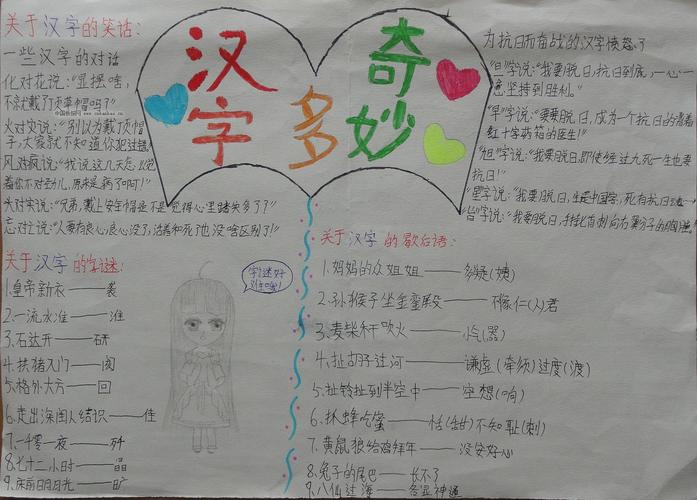 关于汉字的笑话:
一些汉字的对话
化对花说:"显摆啥,
不就戴了顶草帽吗?"
火对灾说:"别以为戴了顶帽
子,大家就不知道你犯过错
风对疯说:"我说这几天怎么觉
着你不对劲儿,原来是病了啊!"
头对实说:"兄弟,戴上安全帽是不是觉得心里踏实多了?"
忘对亡说:"人要有良心,良心没了,活着和死了也没啥区别了!"
关于汉字的字谜:
1.皇帝新衣——袭
2.一流水准——淮
3.石达开——研
4.扶猪入门——阂
5.格外大方——回
6.走出深闺人结识——佳
7.一千零一夜——歼
8.七十二小时——晶
9.床前明月光——旷
汉字多奇妙
字谜好难哦!
为抗日而奋战的汉字愤怒了
"但"字说:"我要脱日,抗日到底,一心一
意,坚持到胜利。
"早"字说:"我要脱日,成为一个抗日的背着
红十字药箱的医生!"
"旭"字说:"我要脱日,即使经过九死一生也要
抗日!"
"里字说:"我要脱日,生是中国
"旨"字说:"我要脱日,
关于汉字的歇后语:
1.妈妈的众姐姐——多疑(姨)
2.孙猴子坐金銮殿——不像仁(人)君
3.麦柴秆吹火——小气(器)
4.扯胡子过河——谦虚(牵须)过度(渡)
5.扯铃扯到半空中——空想(响)
6.抹蜂吃蜜——恬(甜)不知耻(刺)
7.黄鼠狼给鸡拜年——没安好心
8.兔子的尾巴——长不了
9.八仙过海——各显神通